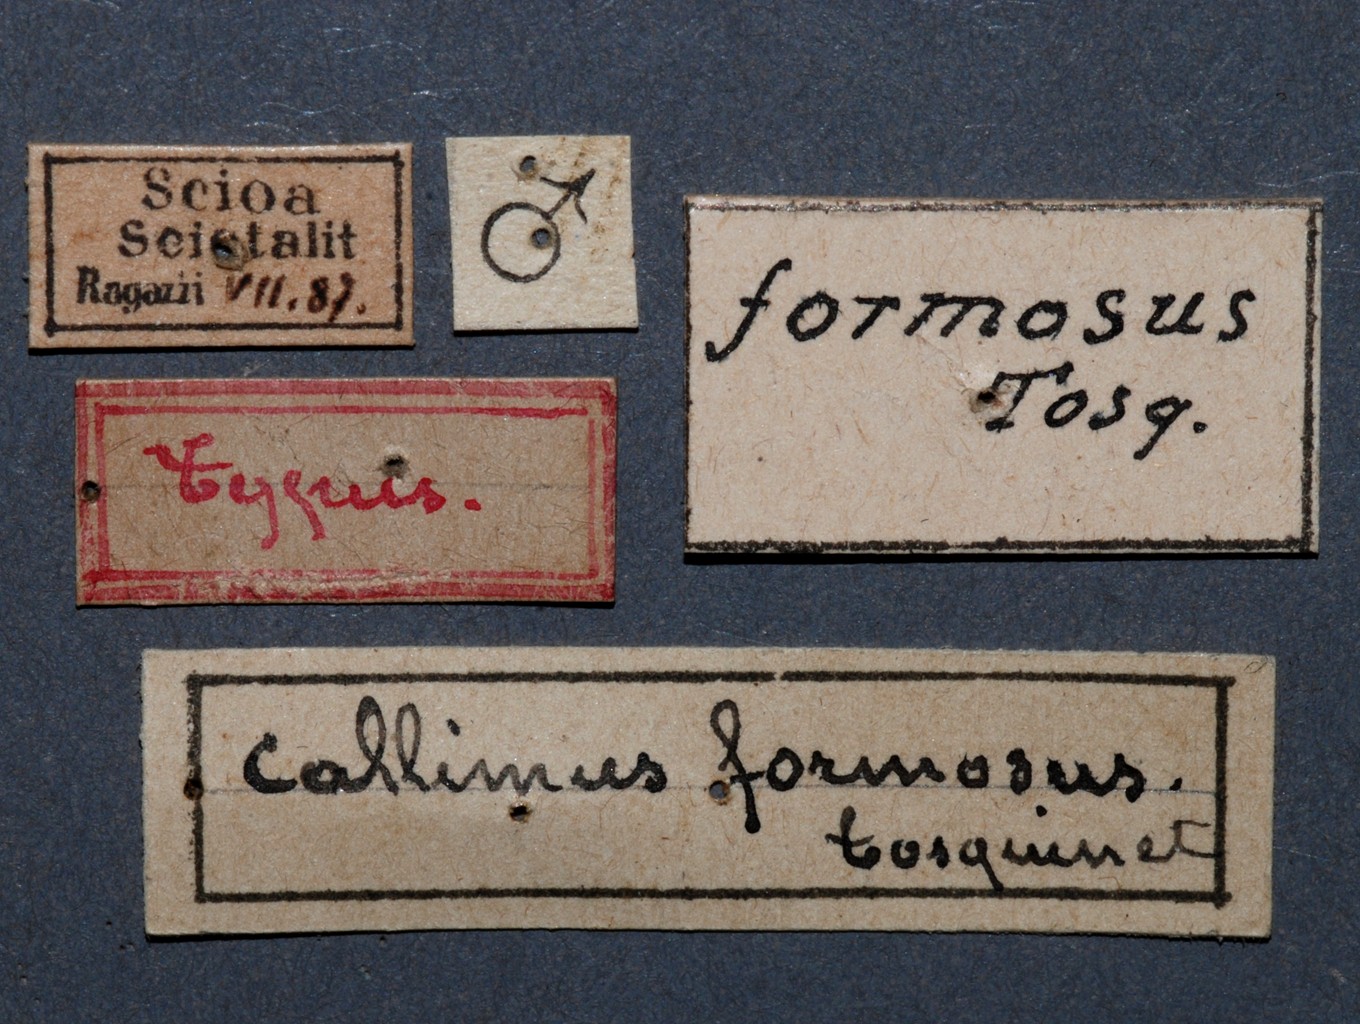 Scioa
Scietalit
Ragazzi VII.87.
♂
formosus
Tosq.
Typus.
Callimus formosus.
Tosquinet